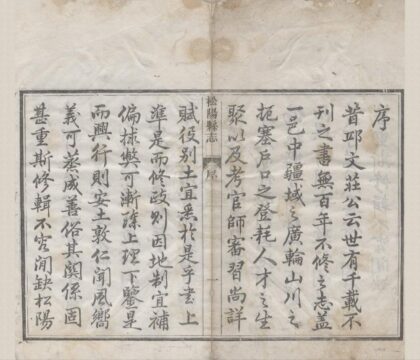 序
昔邱文莊公云世有千載不
刊之書無百年不修之志蓋
一邑中疆域之廣輪山川之
扼塞戶口之登耗人才之生
聚以及考官師審習尚詳
松陽縣志 序 一
賦役別土宜悉於是乎書上
準是而修政則因地制宜補
偏捄獘可漸臻上理下鑒是
而興行則安土敦仁聞風嚮
義可蒸成善俗其關係固
甚重斯修輯不容缺松陽